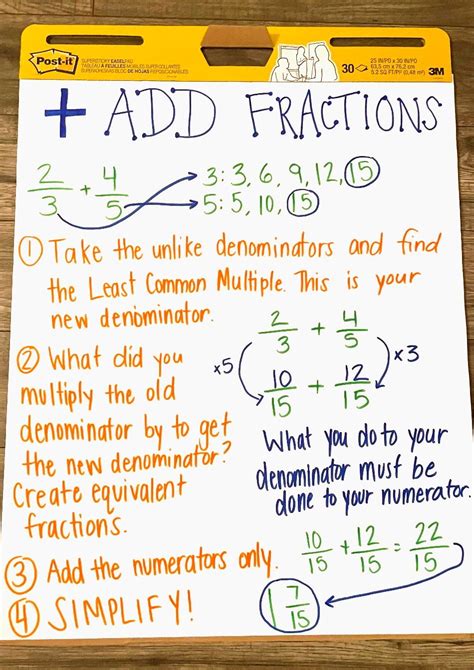 Post-it
SUPERSTICKY EASEL PAD
25 IN/PO x 30 IN/PO
63,5 cm x 76,2 cm
5.2 SQ FT/PP (0,48 m²)
30
3M
+ ADD FRACTIONS
2/3 + 4/5
3: 3, 6, 9, 12, 15
5: 5, 10, 15
① Take the unlike denominators and find
the Least Common Multiple. This is your
new denominator.
2/3 + 4/5
x5 10/15 + 12/15 x3
② What did you
multiply the old
denominator by to get
the new denominator?
Create equivalent
fractions.
What you do to your
denominator must be
done to your numerator.
10/15 + 12/15 = 22/15
③ Add the numerators only.
④ SIMPLIFY!
1 7/15